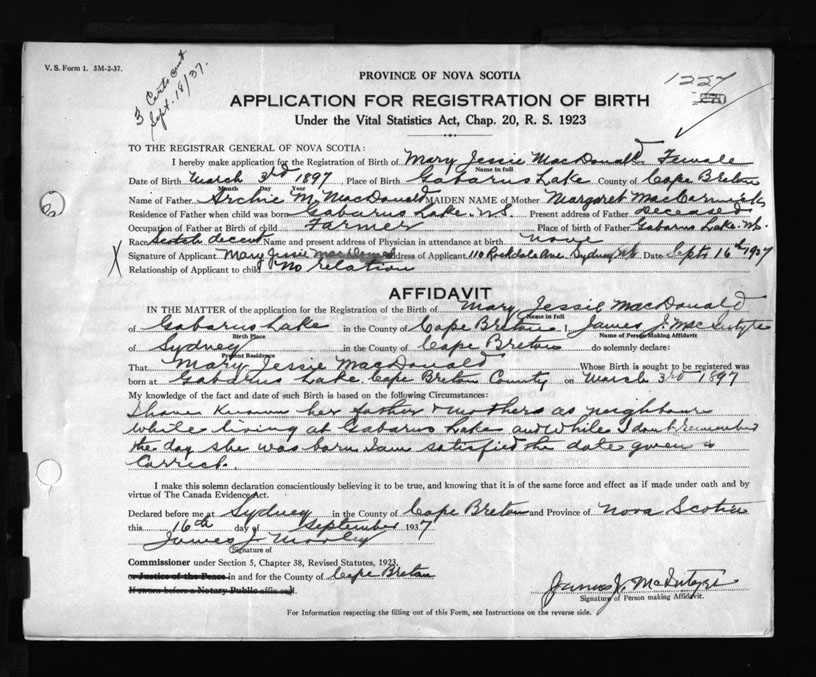 V. S. Form 1. 3M-2-37.
3 Certs sent
Sept. 18/37.
1227
PROVINCE OF NOVA SCOTIA
APPLICATION FOR REGISTRATION OF BIRTH
Under the Vital Statistics Act, Chap. 20, R. S. 1923
TO THE REGISTRAR GENERAL OF NOVA SCOTIA:
I hereby make application for the Registration of Birth of Mary Jessie MacDonald Sex Female
Name in full
Date of Birth March 3rd 1897, Place of Birth Gabarus Lake County of Cape Breton
Month Day Year
Name of Father Archie M. MacDonald MAIDEN NAME of Mother Margaret MacCormick
Residence of Father when child was born Gabarus Lake. N.S. Present address of Father deceased
Occupation of Father at Birth of child Farmer Place of birth of Father Gabarus Lake. N.S.
Race Scotch decent Name and present address of Physician in attendance at birth none
Signature of Applicant Mary Jessie Address of Applicant 110 Rockdale Ave. Sydney NS Date Sept 16th 1937
Relationship of Applicant to child No relation
AFFIDAVIT
IN THE MATTER of the application for the Registration of the Birth of Mary Jessie MacDonald
Name in full
of Gabarus Lake in the County of Cape Breton I, James J. MacIntyre
Birth Place Name of Person Making Affidavit
of Sydney in the County of Cape Breton do solemnly declare:
Present Residence
That Mary Jessie MacDonald Whose Birth is sought to be registered was
born at Gabarus Lake Cape Breton County on March 3rd 1897
My knowledge of the fact and date of such Birth is based on the following Circumstances:
I have known her father & mothers as neighbours
while living at Gabarus Lake and while I dont remember
the day she was born I am satisfied the date given is
Correct.
I make this solemn declaration conscientiously believing it to be true, and knowing that it is of the same force and effect as if made under oath and by
virtue of The Canada Evidence Act.
Declared before me at Sydney in the County of Cape Breton and Province of Nova Scotia
this 16th day of September 1937
James J. Morley
Signature of
Commissioner under Section 5, Chapter 38, Revised Statutes, 1923,
or Justice of the Peace in and for the County of Cape Breton
If sworn before a Notary Public affix seal.
James J. MacIntyre
Signature of Person making Affidavit.
For Information respecting the filling out of this Form, see Instructions on the reverse side.